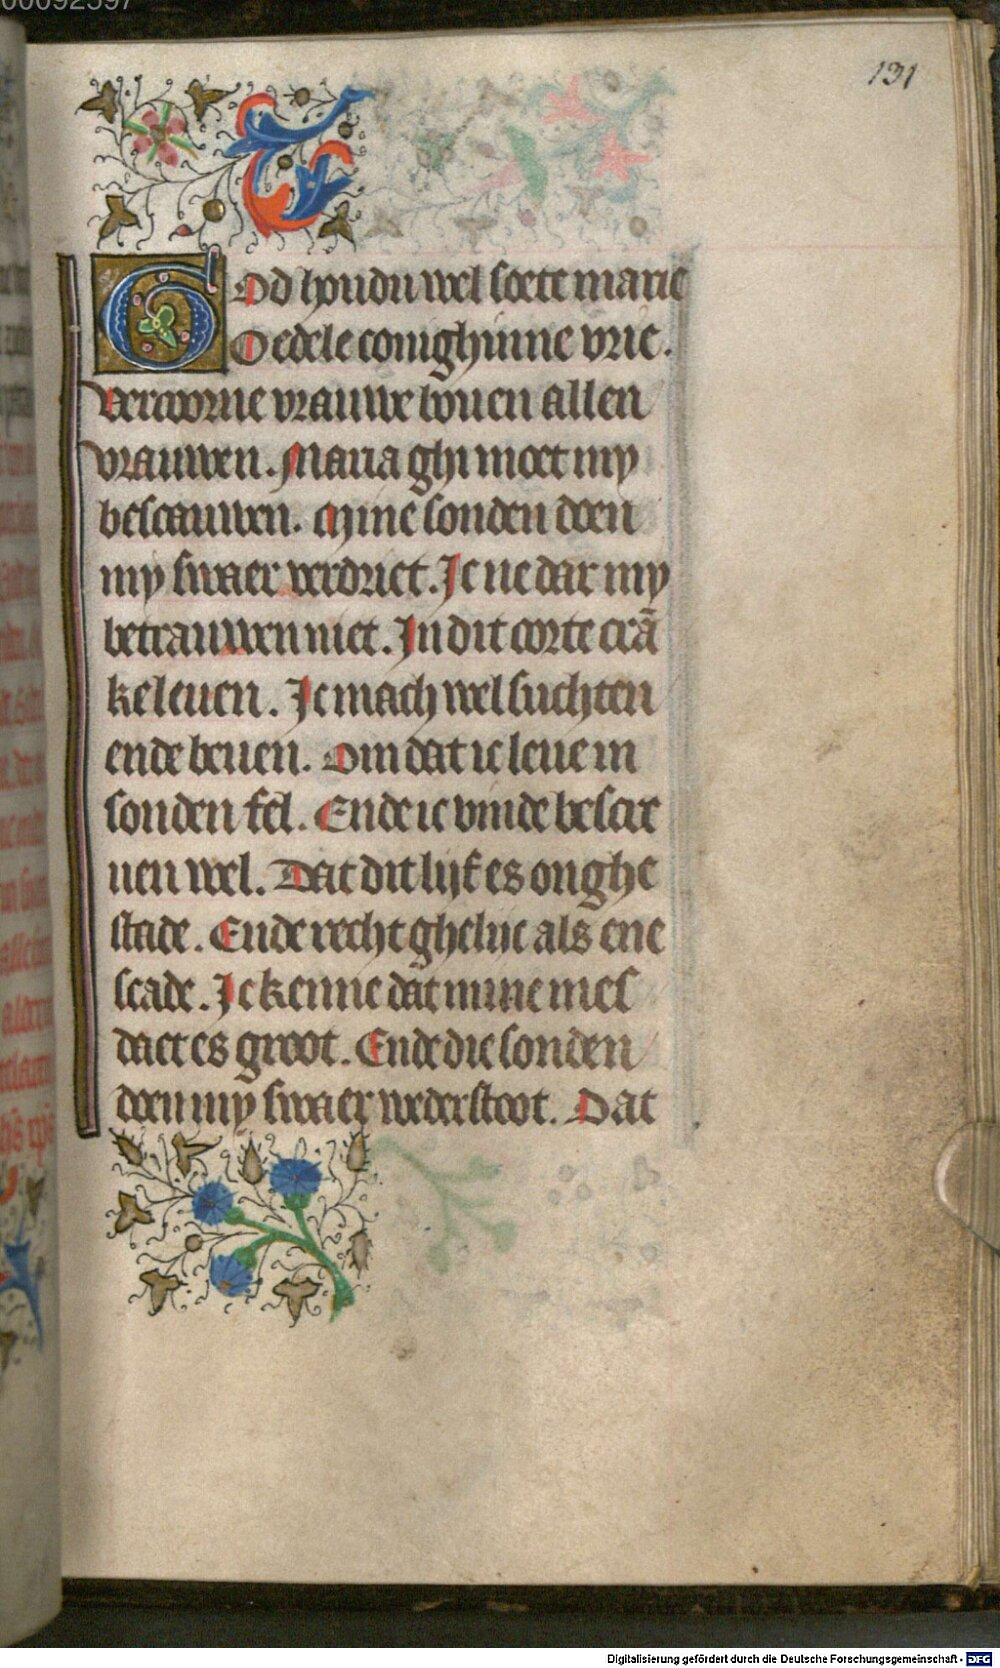 131
God houdu wel soete marie
O edele conighinne vrie.
Vercorne vrauwe bouen allen
vrauwen. Maria ghi moet my
bescauwen. Mine sonden doen
my swaer verdriet. Ic ne dar my
betrauwen niet. In dit corte crā
ke leuen. Ic mach wel suchten
ende beuen. Om dat ic leue in
sonden fel. Ende ic vinde bescre
uen wel. Dat dit lijf es onghe
stade. Ende recht ghelijc als ene
scade. Ic kenne dat mine mes
daet es groot. Ende die sonden
doen my swaer wederstoot. Dat
Digitalisierung gefördert durch die Deutsche Forschungsgemeinschaft - DFG